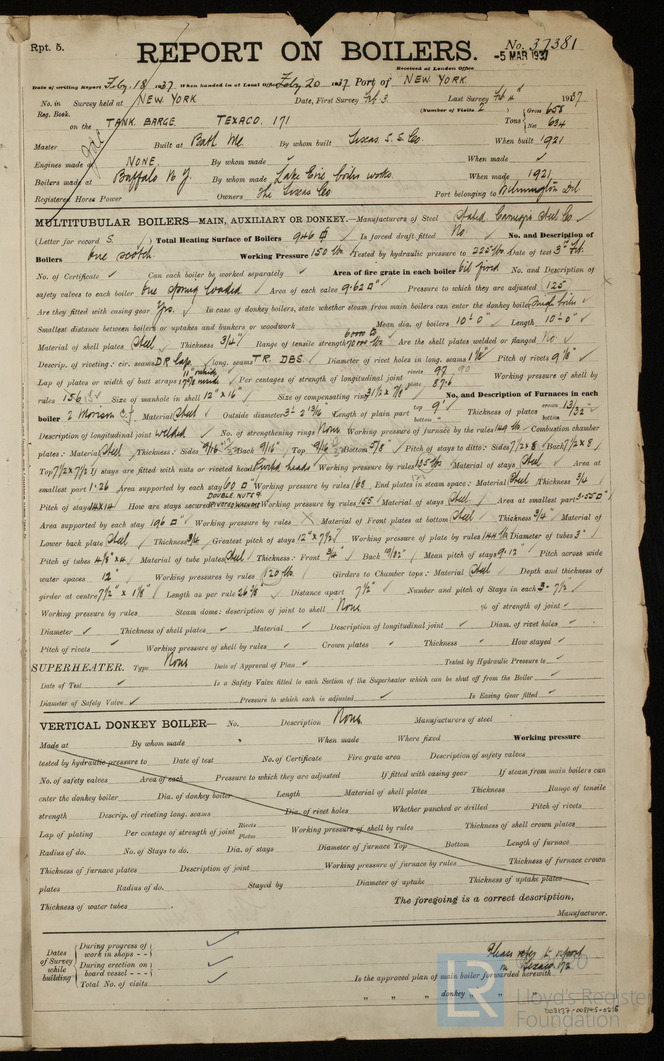 Rpt. 5.
REPORT ON BOILERS.
No. 37381
Received at London Office
-5 MAR 1937
Date of writing Report Feby 18 1937 When handed in at Local Office Feby 20 1937 Port of NEW YORK
No. in Survey held at NEW YORK Date, First Survey Feb 3 Last Survey Feb 4th 1937
Reg. Book. (Number of Visits 2)
on the TANK BARGE TEXACO. 171 Tons Gross 658 Net 634
Master Built at Bath Me. By whom built Texas S. S. Co. When built 1921
Engines made at NONE. By whom made ✓ When made ✓
Boilers made at Buffalo N Y. By whom made Lake Erie boiler works. When made 1921.
Registered Horse Power Owners The Texas Co Port belonging to Wilmington Del
MULTITUBULAR BOILERS—MAIN, AUXILIARY OR DONKEY.—Manufacturers of Steel Carnegie Steel Co. ✓
(Letter for record S. ) Total Heating Surface of Boilers 946 ☐ Is forced draft fitted No ✓ No. and Description of
Boilers One scotch Working Pressure 150 lbs Tested by hydraulic pressure to 225 lbs Date of test 3rd Feb.
No. of Certificate ✓ Can each boiler be worked separately ✓ Area of fire grate in each boiler oil fired No. and Description of
safety valves to each boiler One spring loaded ✓ Area of each valve 9.62 ☐" Pressure to which they are adjusted 125
Are they fitted with easing gear Yes. ✓ In case of donkey boilers, state whether steam from main boilers can enter the donkey boiler Single boiler ✓
Smallest distance between boilers or uptakes and bunkers or woodwork Mean dia. of boilers 10'-0" ✓ Length 10'-0" ✓
Material of shell plates Steel ✓ Thickness 3/4" Range of tensile strength Are the shell plates welded or flanged No ✓
Descrip. of riveting: cir. seams DR Lap long. seams TR. DBS. Diameter of rivet holes in long. seams Pitch of rivets
Lap of plates or width of butt straps Per centages of strength of longitudinal joint rivets 97 plate 87.6 Working pressure of shell by
rules 156 Size of manhole in shell 12" x 16" Size of compensating ring No. and Description of Furnaces in each
boiler 2 Morison C.F. Material Steel ✓ Outside diameter Length of plain part top bottom Thickness of plates crown bottom 13/32"
Description of longitudinal joint welded ✓ No. of strengthening rings None Working pressure of furnace by the rules Combustion chamber
plates: Material Steel Thickness: Sides 9/16" Back 9/16" Top 9/16 Bottom 5/8" Pitch of stays to ditto: Sides 7 1/2 x 8 Back 7 1/2 x 8
Top 7 1/2 x 7 1/2 If stays are fitted with nuts or riveted heads Working pressure by rules 135 lbs Material of stays Steel Area at
smallest part 1.26 Area supported by each stay 60 ☐" Working pressure by rules 168 End plates in steam space: Material Steel Thickness 3/4
Pitch of stays 14x14 How are stays secured DOUBLE NUTS & RIVETED WASHERS Working pressure by rules 155 Material of stays Steel Area at smallest part 3.55 ☐"
Area supported by each stay 196 ☐" ✓ Working pressure by rules Material of Front plates at bottom Steel Thickness 3/4" Material of
Lower back plate Steel Thickness 3/4 Greatest pitch of stays 12" x 7 1/2" Working pressure of plate by rules 144 lbs Diameter of tubes 3"
Pitch of tubes 4 1/8" x 4 Material of tube plates Steel Thickness: Front 3/4" Back 19/32" Mean pitch of stays 9.12" Pitch across wide
water spaces 12" Working pressures by rules 120 lbs Girders to Chamber tops: Material Steel Depth and thickness of
girder at centre 7 1/2" x 1 1/8" Length as per rule 26 Distance apart 7 1/2" Number and pitch of Stays in each 3- 7 1/2"
Working pressure by rules Steam dome: description of joint to shell None % of strength of joint ✓
Diameter ✓ Thickness of shell plates ✓ Material ✓ Description of longitudinal joint ✓ Diam. of rivet holes ✓
Pitch of rivets ✓ Working pressure of shell by rules ✓ Crown plates ✓ Thickness ✓ How stayed ✓
SUPERHEATER. Type None Date of Approval of Plan ✓ Tested by Hydraulic Pressure to ✓
Date of Test ✓ Is a Safety Valve fitted to each Section of the Superheater which can be shut off from the Boiler ✓
Diameter of Safety Valve ✓ Pressure to which each is adjusted ✓ Is Easing Gear fitted ✓
VERTICAL DONKEY BOILER— No. Description None Manufacturers of steel
Made at By whom made When made Where fixed Working pressure
tested by hydraulic pressure to Date of test No. of Certificate Fire grate area Description of safety valves
No. of safety valves Area of each Pressure to which they are adjusted If fitted with easing gear If steam from main boilers can
enter the donkey boiler Dia. of donkey boiler Length Material of shell plates Thickness Range of tensile
strength Descrip. of riveting long. seams Dia. of rivet holes Whether punched or drilled Pitch of rivets
Lap of plating Per centage of strength of joint Rivets Plates Working pressure of shell by rules Thickness of shell crown plates
Radius of do. No. of Stays to do. Dia. of stays Diameter of furnace Top Bottom Length of furnace
Thickness of furnace plates Description of joint Working pressure of furnace by rules Thickness of furnace crown
plates Radius of do. Stayed by Diameter of uptake Thickness of uptake plates
Thickness of water tubes The foregoing is a correct description,
Manufacturer.
Dates of Survey while building
During progress of work in shops - - ✓
During erection on board vessel - - - ✓
Total No. of visits ✓
Please refer to report on Texaco 172
Is the approved plan of main boiler forwarded herewith
" " " donkey " " "
LR
Lloyd's Register
Foundation
003137-003145-0215